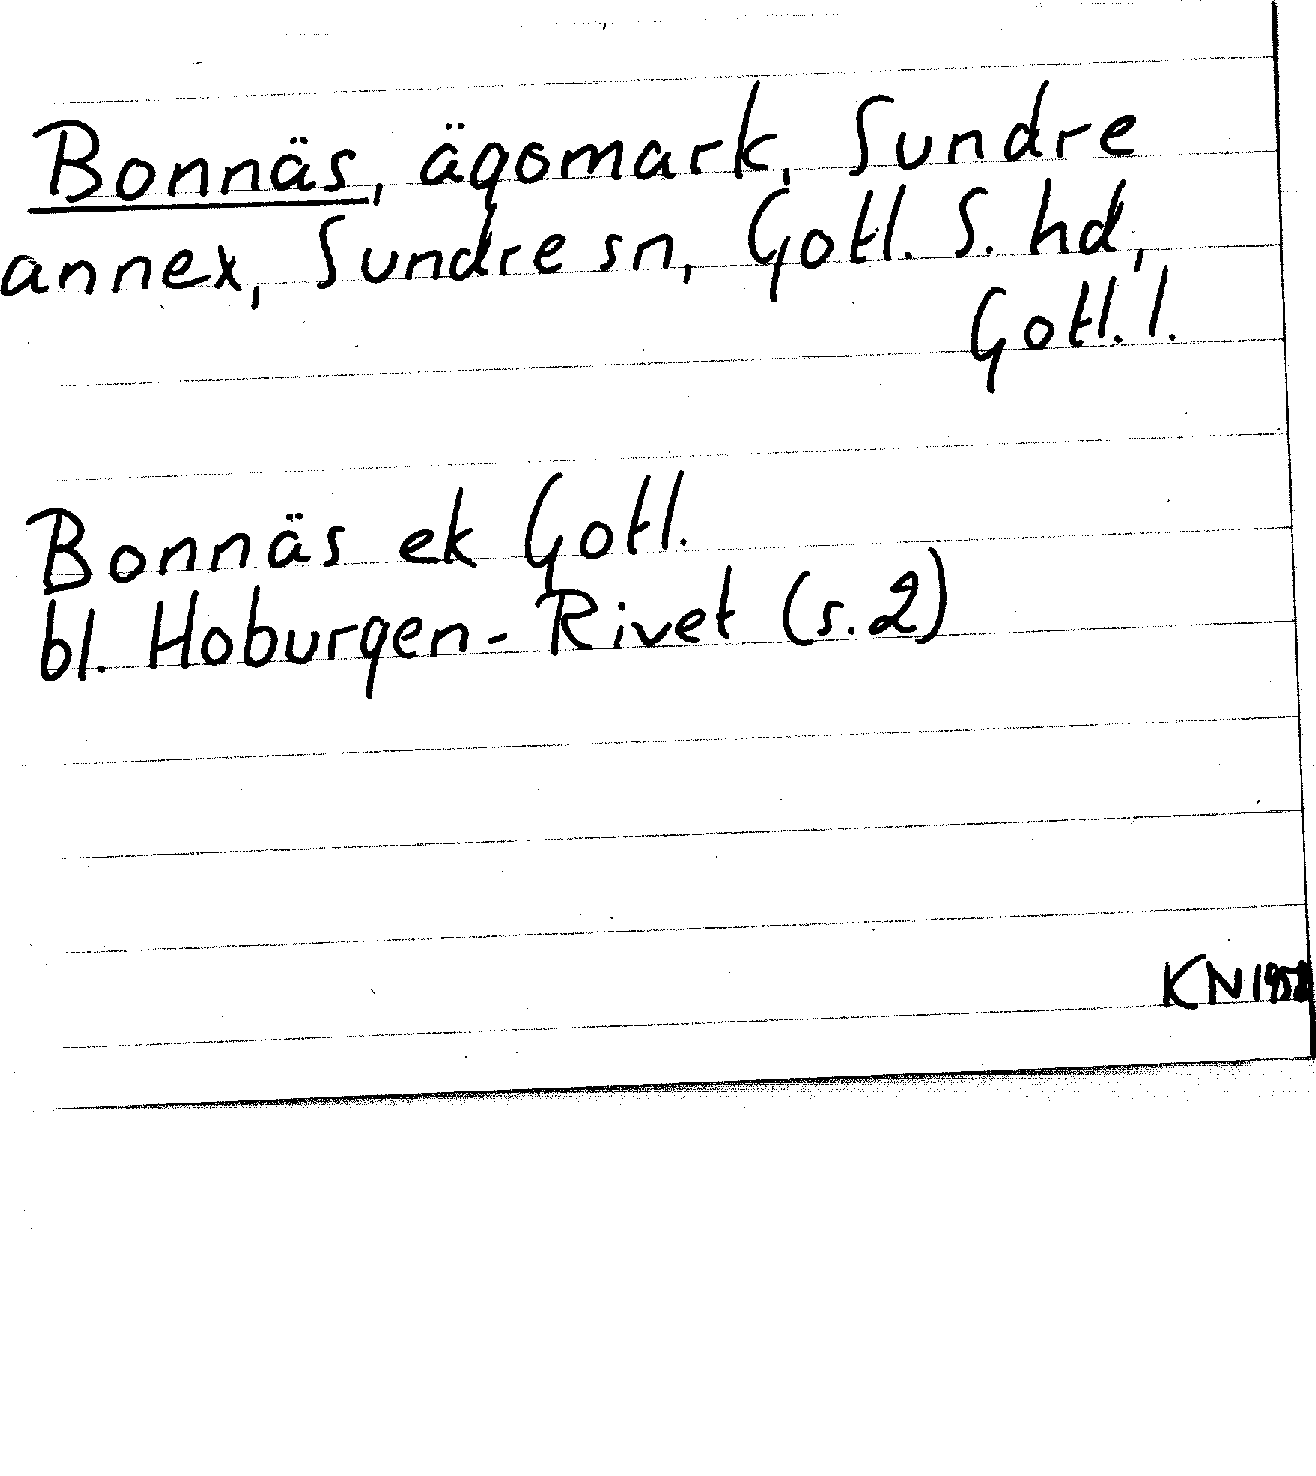 Bonnäs, ägomark, Sundre
annex, Sundre sn, Gotl. S. hd,
Gotl. l.
Bonnäs ek Gotl.
bl. Hoburgen - Rivet (s. 2)
KN